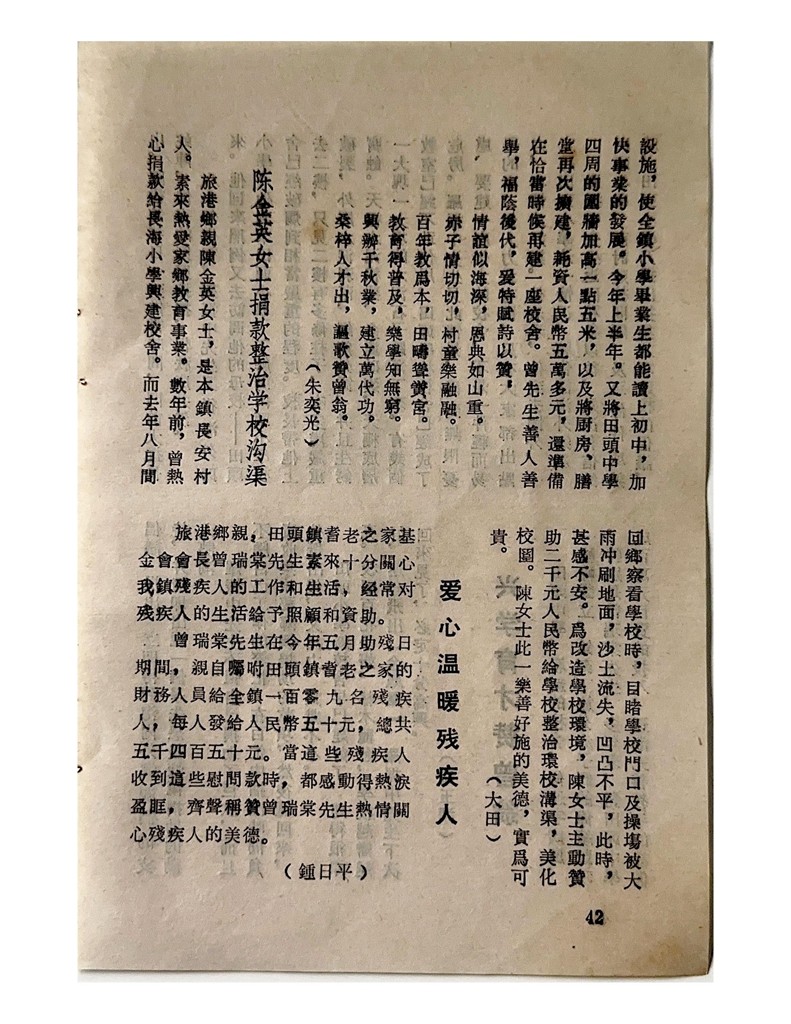 設施，使全鎮小學畢業生都能讀上初中，加
快事業的發展。今年上半年。又將田頭中學
四周的圍牆加高一點五米，以及將厨房、膳
堂再次擴建，耗資人民幣五萬多元，還準備
在恰當時候再建一座校舍。曾先生善人善
舉，福陰後代，爰特賦詩以贊：
情誼似海深，恩典如山重。
赤子情切切，村童樂融融。
百年教爲本，田疇聳黌宫。
教育得普及，樂學知無窮。
興辦千秋業，建立萬代功。
桑梓人才出，謳歌贊曾翁。
（朱奕光）
陈金英女士捐款整治学校沟渠
旅港鄉親陳金英女士，是本鎮長安村
人。素來熱愛家鄉教育事業。數年前，曾熱
心捐款給長海小學興建校舍。而去年八月間
回鄉察看學校時，目睹學校門口及操場被大
雨冲刷地面，沙土流失，凹凸不平，此時，
甚感不安。爲改造學校環境，陳女士主動贊
助二千元人民幣給學校整治環校溝渠，美化
校園。陳女士此一樂善好施的美德，實爲可
貴。
（大田）
爱心温暖残疾人
旅港鄉親、田頭鎮耆老之家基
金會會長曾瑞棠先生素來十分關心
我鎮殘疾人的工作和生活，經常对
残疾人的生活給予照顧和資助。
曾瑞棠先生在今年五月助殘日
期間，親自囑咐田頭鎮耆老之家的
財務人員給全鎮一百零九名殘疾
人，每人發給人民幣五十元，總共
五千四百五十元。當這些殘疾人
收到這些慰問款時，都感動得熱淚
盈眶，齊聲稱贊曾瑞棠先生熱情關
心殘疾人的美德。
（鍾日平）
42